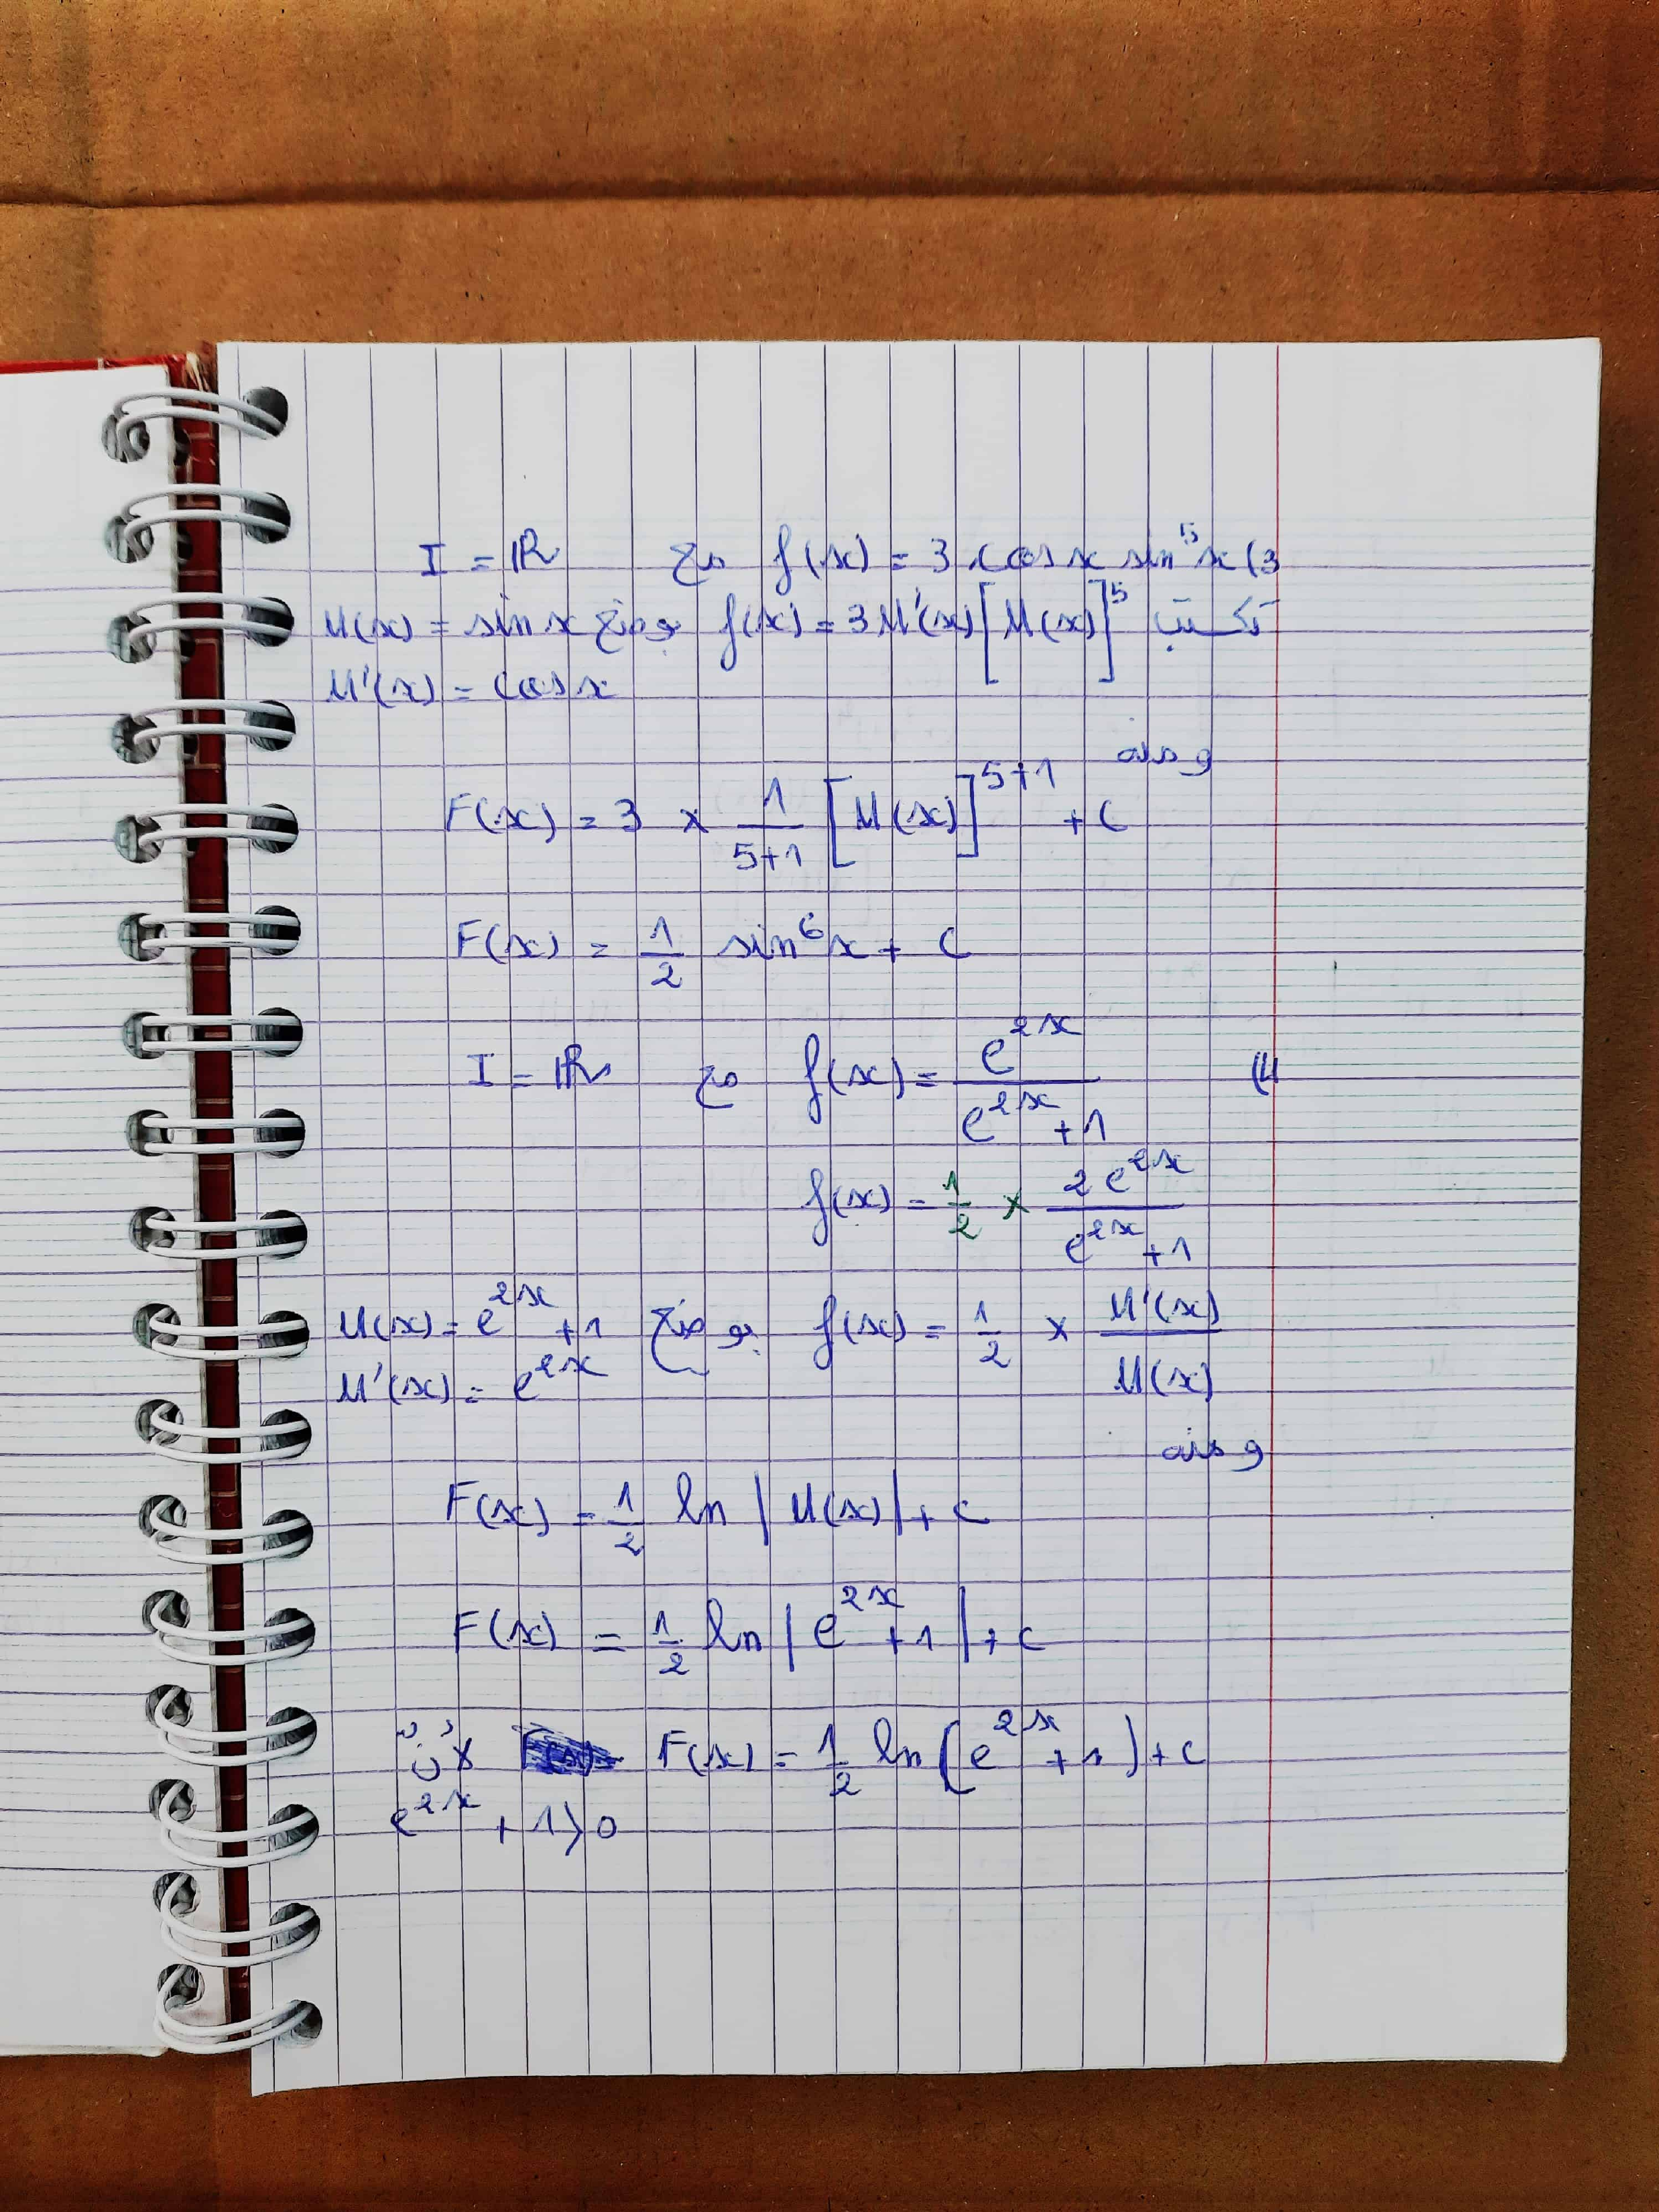 3) f(x) = 3 cos x sin⁵x مع I = ℝ
تكتب f(x) = 3 U'(x) [U(x)]⁵ بوضع U(x) = sin x
U'(x) = cos x
و منه
F(x) = 3 × 1/(5+1) [U(x)]⁵⁺¹ + C
F(x) = 1/2 sin⁶x + C
4) f(x) = e^(2x)/(e^(2x) + 1) مع I = ℝ
f(x) = 1/2 × 2e^(2x)/(e^(2x) + 1)
f(x) = 1/2 × U'(x)/U(x) بوضع U(x) = e^(2x) + 1
U'(x) = e^(2x)
و منه
F(x) = 1/2 ln |U(x)| + c
F(x) = 1/2 ln |e^(2x) + 1| + c
F(x) = 1/2 ln (e^(2x) + 1) + c لأن
e^(2x) + 1 > 0